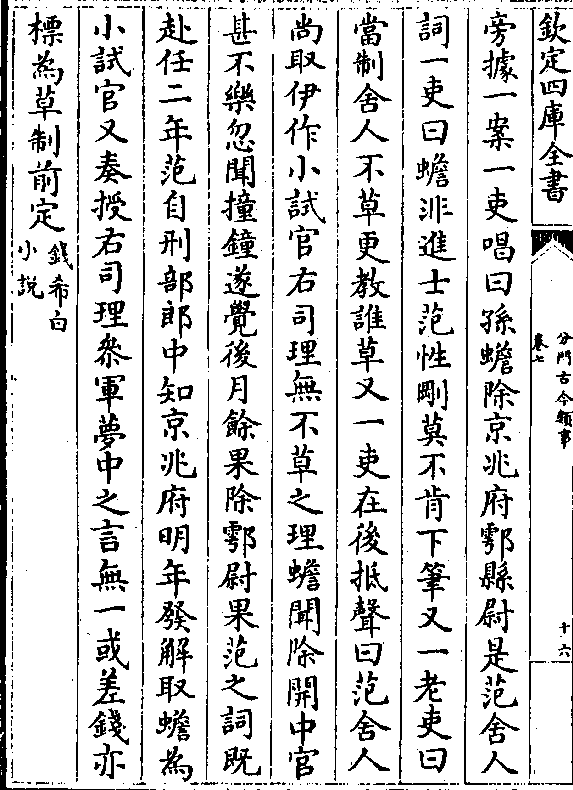 欽定四庫全書
分門古今類事
卷七
十六
旁據一案一吏唱曰孫蟾除京兆府鄠縣尉是范舍人
詞一吏曰蟾非進士范性剛莫不肯下筆又一老吏曰
當制舍人不草更教誰草又一吏在後抵聲曰范舍人
尚取伊作小試官右司理無不草之理蟾聞除關中官
甚不樂忽聞撞鐘遂覺後月餘果除鄠尉果范之詞既
赴任二年范自刑部郎中知京兆府明年發解取蟾為
小試官又奏授右司理叅軍夢中之言無一或差錢亦
標為草制前定
錢希白
小說